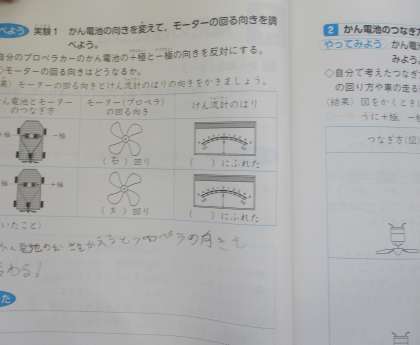 べよう 実験1 かん電池の向きを変えて、モーターの回る向きを調
べよう。
自分のプロペラカーのかん電池の+極と−極の向きを反対にする。
◇モーターの回る向きはどうなるか。
果) モーターの回る向きとけん流計のはりの向きをかきましょう。
かん電池とモーター
のつなぎ方
モーター(プロペラ)
の回る向き
けん流計のはり
+極 −極
(右)回り
( )にふれた
極 +極
( )回り
( )にふれた
いたこと)
かん電池の をかえるとプロペラの向きも
わる!
た
2 かん電池のつなぎ方
やってみよう かん電
みよう。
◇自分で考えたつなぎ
の回り方や車の走る
(結果) 図をかくとき
うに+極、−極
つなぎ方(図)